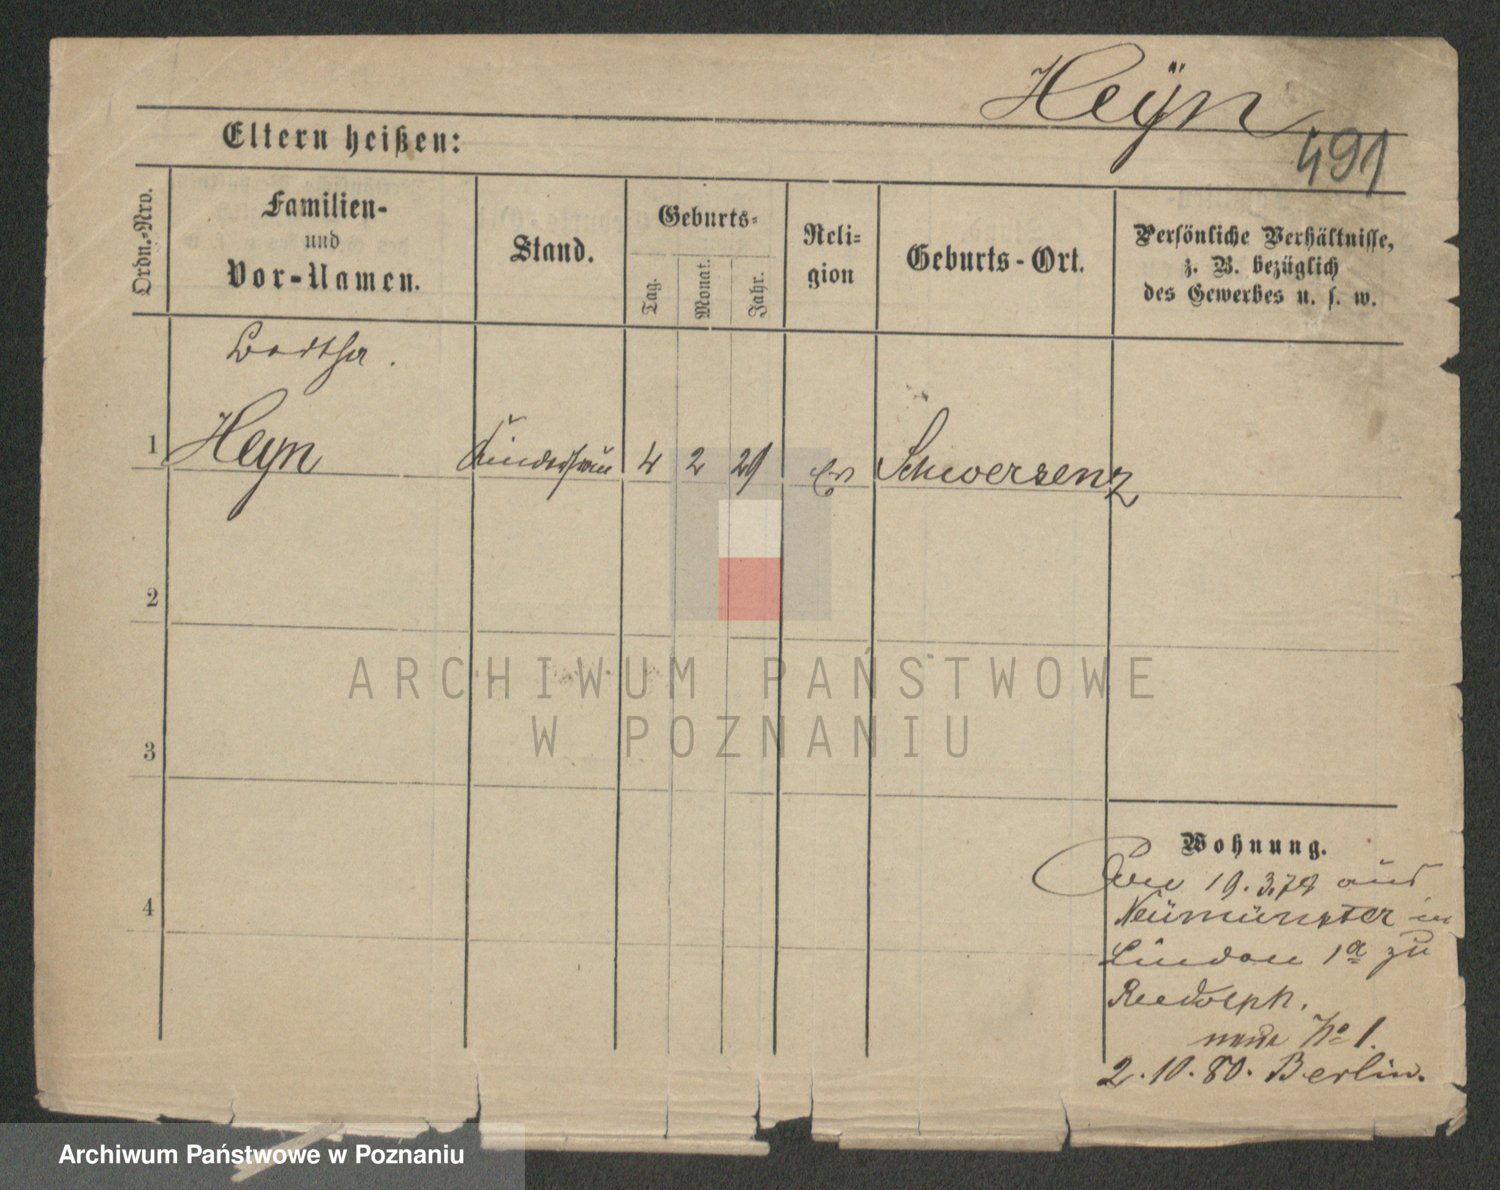 Heÿn
491
Eltern heißen:
Ordn.-Nro.
Familien-
und
Vor-Namen.
Stand.
Geburts-
Tag.
Monat.
Jahr.
Reli-
gion
Geburts-Ort.
Persönliche Verhältnisse,
z. B. bezüglich
des Gewerbes u. s. w.
Bertha.
1 Heyn Kinderfrau 4 2 29 Ev Schwersenz
2
3
4
ARCHIWUM PAŃSTWOWE
W POZNANIU
Wohnung.
19.3.79 aus
Neumünster in
Linden 1a zu
Rudolph.
No 1.
2.10.80. Berlin.
Archiwum Państwowe w Poznaniu